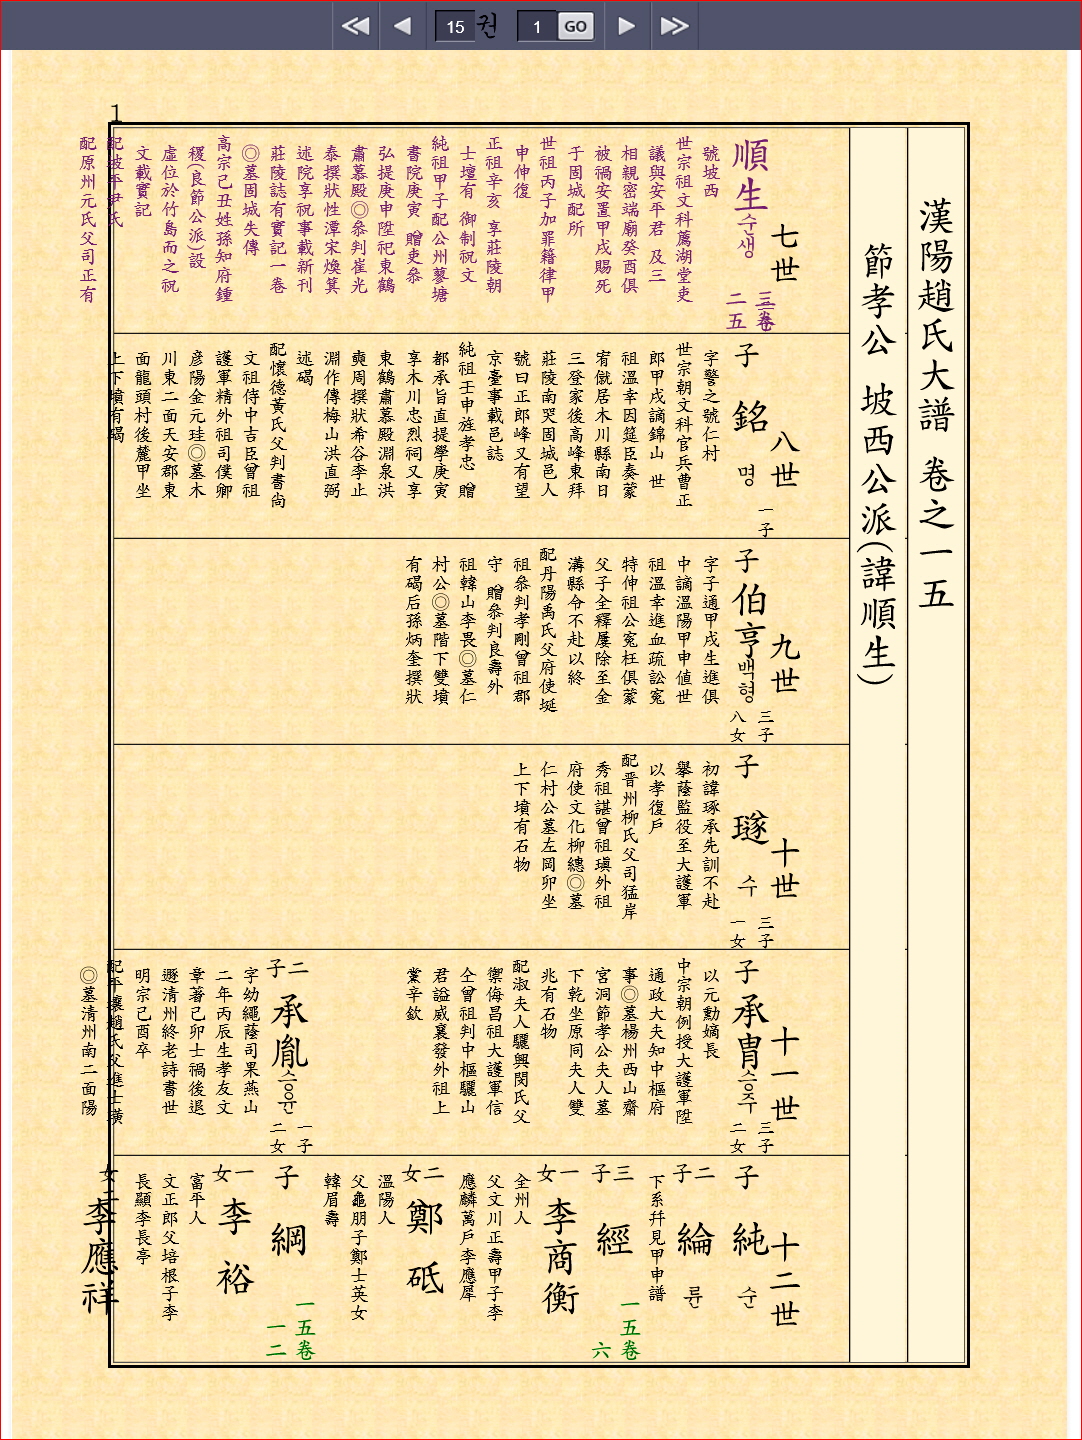 15 권 1 GO
1
漢陽趙氏大譜 卷之一五
節孝公 坡西公派(諱順生)
七世
順生 순생
三卷
二五
號坡西
世宗祖文科薦湖堂吏
議與安平君 及三
相親密端廟癸酉俱
被禍安置甲戌賜死
于固城配所
世祖丙子加罪籍律甲
申伸復
正祖辛亥 享莊陵朝
士壇有 御制祝文
純祖甲子配公州蓼塘
書院庚寅 贈吏叅
弘提庚申陞祀東鶴
肅慕殿◎叅判崔光
泰撰狀性潭宋煥箕
述院享祝事載新刊
莊陵誌有實記一卷
◎墓固城失傳
高宗己丑姓孫知府鍾
稷(良節公派)設
虛位於竹島而之祝
文載實記
配坡平尹氏
配原州元氏父司正有
八世
子
銘 명
一子
字警之號仁村
世宗朝文科官兵曹正
郎甲戌謫錦山 世
祖溫幸因筵臣奏蒙
宥僦居木川縣南日
三登家後高峰東拜
莊陵南哭固城邑人
號曰正郎峰又有望
京臺事載邑誌
純祖壬申旌孝忠 贈
都承旨直提學庚寅
享木川忠烈祠又享
東鶴肅慕殿淵泉洪
奭周撰狀希谷李止
淵作傳梅山洪直弼
述碣
配懷德黃氏父判書尙
文祖侍中吉臣曾祖
護軍精外祖司僕卿
彦陽金元珪◎墓木
川東二面天安郡東
面龍頭村後麓甲坐
上下墳有碣
九世
子
伯亨 백형
三子
八女
字子通甲戌生進俱
中謫溫陽甲申値世
祖溫幸進血疏訟寃
特伸祖公寃枉俱蒙
父子全釋屢除至金
溝縣令不赴以終
配丹陽禹氏父府使埏
祖叅判孝剛曾祖郡
守 贈叅判良壽外
祖韓山李畏◎墓仁
村公◎墓階下雙墳
有碣后孫炳奎撰狀
十世
子
璲 수
三子
一女
初諱琢承先訓不赴
擧蔭監役至大護軍
以孝復戶
配晋州柳氏父司猛岸
秀祖諶曾祖瑱外祖
府使文化柳繐◎墓
仁村公墓左岡卯坐
上下墳有石物
十一世
子
承冑 승주
三子
二女
以元勳嫡長
中宗朝例授大護軍陞
通政大夫知中樞府
事◎墓楊州西山齋
宮洞節孝公夫人墓
下乾坐原同夫人雙
兆有石物
配淑夫人驪興閔氏父
禦侮昌祖大護軍信
仝曾祖判中樞驪山
君謚威襄發外祖上
黨辛欽
二子
承胤 승윤
一子
二女
字幼繩蔭司果燕山
二年丙辰生孝友文
章著己卯士禍後退
遯淸州終老詩書世
明宗己酉卒
配平壤趙氏父進士璜
◎墓淸州南二面陽
十二世
子
純 순
二子
綸 륜
下系幷見甲申譜
三子
經
一五卷
六
一女
李商衡
全州人
父文川正壽甲子李
應麟萬戶李應犀
二女
鄭砥
溫陽人
父龜朋子鄭士英女
韓眉壽
子
綱
一五卷
一二
一女
李裕
富平人
文正郎父培根子李
長顯李長亭
二女
李應祥